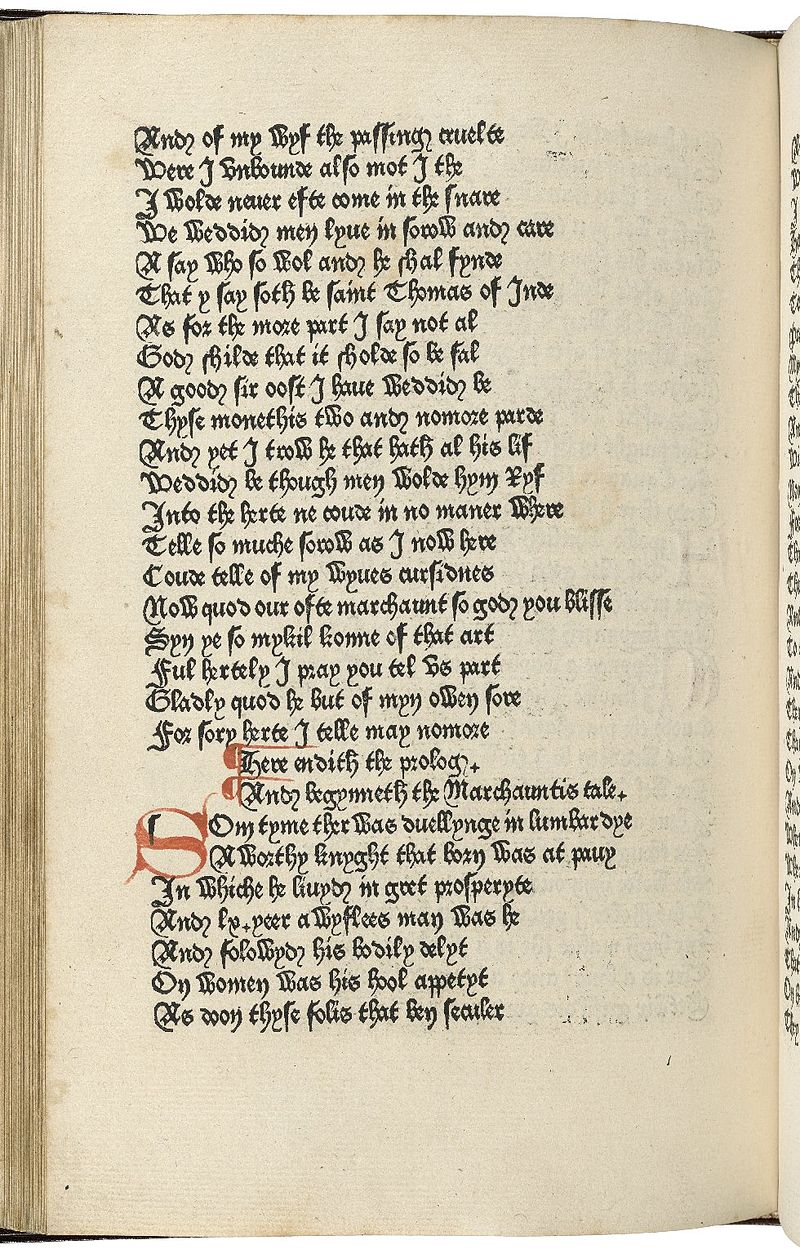 And of my wyf the passing cruelte
Were I vnbounde also mot I the
I wolde neuer efte come in the snare
We weddid men lyue in sorow and care
A say who so wol and he shal fynde
That y say soth be saint Thomas of Inde
As for the more part I say not al
God shilde that it sholde so be fal
A good sir oost I haue weddid be
Thyse monethis two and nomore parde
And yet I trow he that hath al his lif
Weddid be though men wolde hym ryf
Into the herte ne coude in no maner where
Telle so muche sorow as I now here
Coude telle of my wyues cursidnes
Now quod our ofte marchaunt so god you blisse
Syn ye so mykil konne of that art
Ful hertely I pray you tel vs part
Gladly quod he but of myn owen sore
For sory herte I telle may nomore
¶ Here endith the prolog.
¶ And begynneth the Marchauntis tale.
Som tyme ther was duellynge in lumbardye
A worthy knyght that born was at pauy
In whiche he liuyd in greet prosperyte
And lx. yeer a wyflees man was he
And folowyd his bodily delyt
On women was his hool appetyt
As doon thyse folis that ben seculer